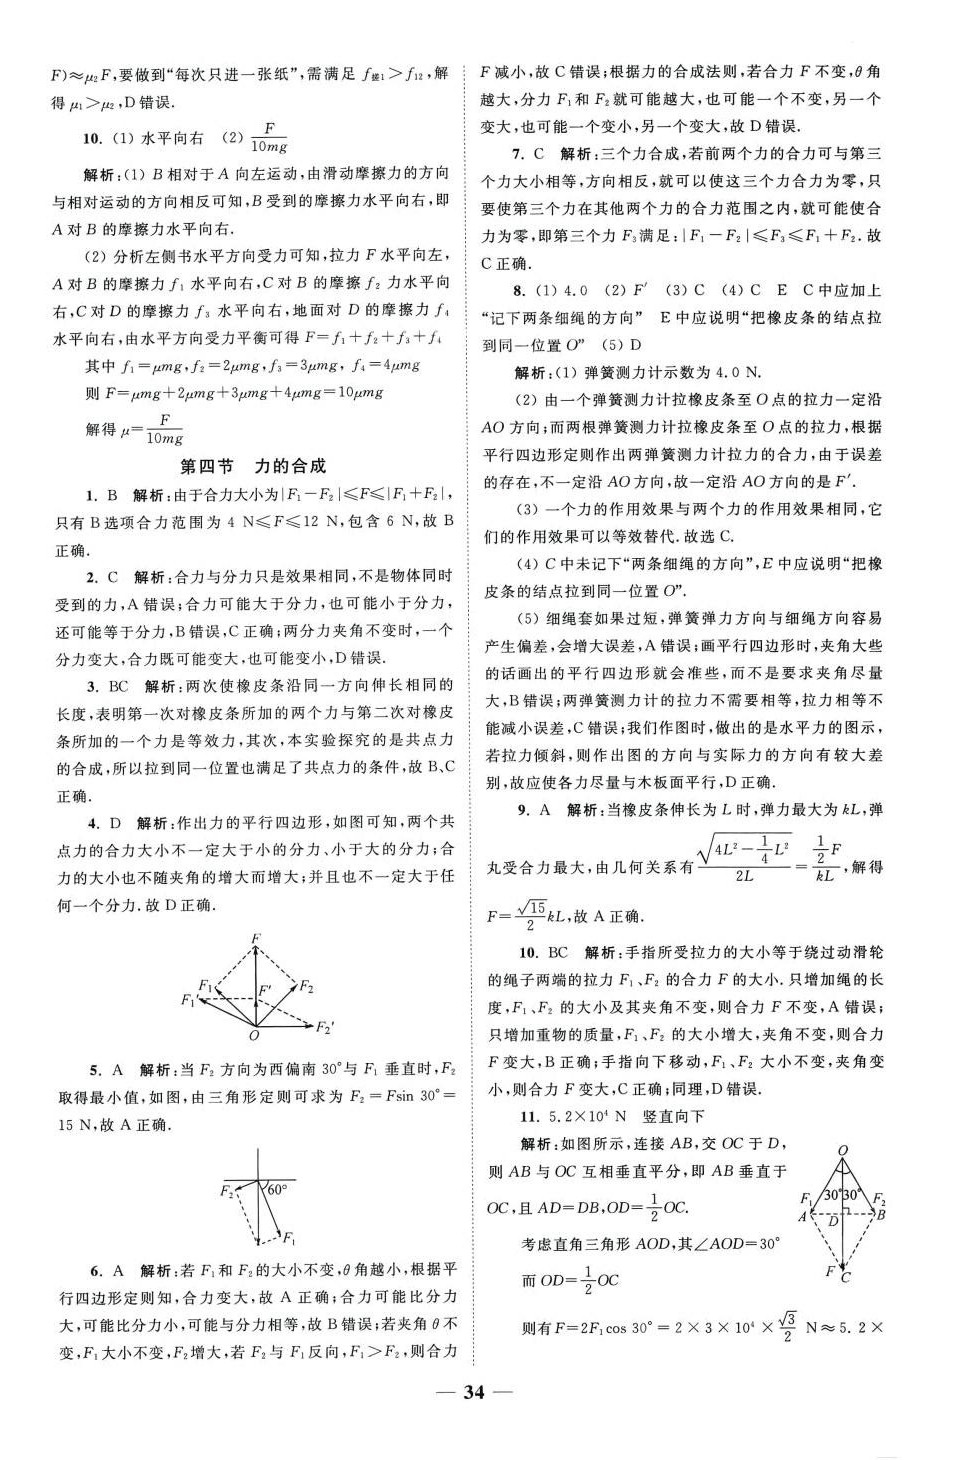 F)≈μ₂F,要做到“每次只进一张纸”,需满足 f搓1>f₁₂,解
得 μ₁>μ₂,D错误.
10. (1) 水平向右 (2) F/10mg
解析:(1) B 相对于 A 向左运动,由滑动摩擦力的方向
与相对运动的方向相反可知,B 受到的摩擦力水平向右,即
A 对 B 的摩擦力水平向右.
(2) 分析左侧书水平方向受力可知,拉力 F 水平向左,
A 对 B 的摩擦力 f₁ 水平向右,C 对 B 的摩擦 f₂ 力水平向
右,C 对 D 的摩擦力 f₃ 水平向右,地面对 D 的摩擦力 f₄
水平向右,由水平方向受力平衡可得 F=f₁+f₂+f₃+f₄
其中 f₁=μmg,f₂=2μmg,f₃=3μmg, f₄=4μmg
则 F=μmg+2μmg+3μmg+4μmg=10μmg
解得 μ=F/10mg
第四节 力的合成
1. B 解析:由于合力大小为|F₁-F₂|≤F≤|F₁+F₂|,
只有 B 选项合力范围为 4 N≤F≤12 N,包含 6 N,故 B
正确.
2. C 解析:合力与分力只是效果相同,不是物体同时
受到的力,A 错误;合力可能大于分力,也可能小于分力,
还可能等于分力,B 错误,C 正确;两分力夹角不变时,一个
分力变大,合力既可能变大,也可能变小,D 错误.
3. BC 解析:两次使橡皮条沿同一方向伸长相同的
长度,表明第一次对橡皮条所加的两个力与第二次对橡皮
条所加的一个力是等效力,其次,本实验探究的是共点力
的合成,所以拉到同一位置也满足了共点力的条件,故 B、C
正确.
4. D 解析:作出力的平行四边形,如图可知,两个共
点力的合力大小不一定大于小的分力、小于大的分力;合
力的大小也不随夹角的增大而增大;并且也不一定大于任
何一个分力.故 D 正确.
F
F₁ F₂
F₁′ F′
F₂′
O
5. A 解析:当 F₂ 方向为西偏南 30°与 F₁ 垂直时,F₂
取得最小值,如图,由三角形定则可求为 F₂=Fsin 30°=
15 N,故 A 正确.
F₂ 60°
F₁
6. A 解析:若 F₁ 和 F₂ 的大小不变,θ 角越小,根据平
行四边形定则知,合力变大,故 A 正确;合力可能比分力
大,可能比分力小,可能与分力相等,故 B 错误;若夹角 θ 不
变,F₁ 大小不变,F₂ 增大,若 F₂ 与 F₁ 反向,F₁>F₂,则合力
F 减小,故 C 错误;根据力的合成法则,若合力 F 不变,θ 角
越大,分力 F₁ 和 F₂ 就可能越大,也可能一个不变,另一个
变大,也可能一个变小,另一个变大,故 D 错误.
7. C 解析:三个力合成,若前两个力的合力可与第三
个力大小相等,方向相反,就可以使这三个力合力为零,只
要使第三个力在其他两个力的合力范围之内,就可能使合
力为零,即第三个力 F₃ 满足:|F₁-F₂|≤F₃≤F₁+F₂.故
C 正确.
8. (1) 4.0 (2) F′ (3) C (4) C E C 中应加上
“记下两条细绳的方向” E 中应说明“把橡皮条的结点拉
到同一位置 O” (5) D
解析:(1) 弹簧测力计示数为 4.0 N.
(2) 由一个弹簧测力计拉橡皮条至 O 点的拉力一定沿
AO 方向;而两根弹簧测力计拉橡皮条至 O 点的拉力,根据
平行四边形定则作出两弹簧测力计拉力的合力,由于误差
的存在,不一定沿 AO 方向,故一定沿 AO 方向的是 F′.
(3) 一个力的作用效果与两个力的作用效果相同,它
们的作用效果可以等效替代.故选 C.
(4) C 中未记下“两条细绳的方向”,E 中应说明“把橡
皮条的结点拉到同一位置 O”.
(5) 细绳套如果过短,弹簧弹力方向与细绳方向容易
产生偏差,会增大误差,A 错误;画平行四边形时,夹角大些
的话画出的平行四边形就会准些,而不是要求夹角尽量
大,B 错误;两弹簧测力计的拉力不需要相等,拉力相等不
能减小误差,C 错误;我们作图时,做出的是水平力的图示,
若拉力倾斜,则作出图的方向与实际力的方向有较大差
别,故应使各力尽量与木板面平行,D 正确.
9. A 解析:当橡皮条伸长为 L 时,弹力最大为 kL,弹
丸受合力最大,由几何关系有 √(4L²-1/4L²)/2L = (1/2F)/kL,解得
F=√15/2kL,故 A 正确.
10. BC 解析:手指所受拉力的大小等于绕过动滑轮
的绳子两端的拉力 F₁、F₂ 的合力 F 的大小.只增加绳的长
度,F₁、F₂ 的大小及其夹角不变,则合力 F 不变,A 错误;
只增加重物的质量,F₁、F₂ 的大小增大,夹角不变,则合力
F 变大,B 正确;手指向下移动,F₁、F₂ 大小不变,夹角变
小,则合力 F 变大,C 正确;同理,D 错误.
11. 5.2×10⁴ N 竖直向下
解析:如图所示,连接 AB,交 OC 于 D,
则 AB 与 OC 互相垂直平分,即 AB 垂直于
OC,且 AD=DB,OD=1/2OC.
考虑直角三角形 AOD,其∠AOD=30°
而 OD=1/2OC
则有 F=2F₁cos 30°=2×3×10⁴×√3/2 N≈5.2×
O
F₁ 30°30° F₂
A D B
F C
— 34 —